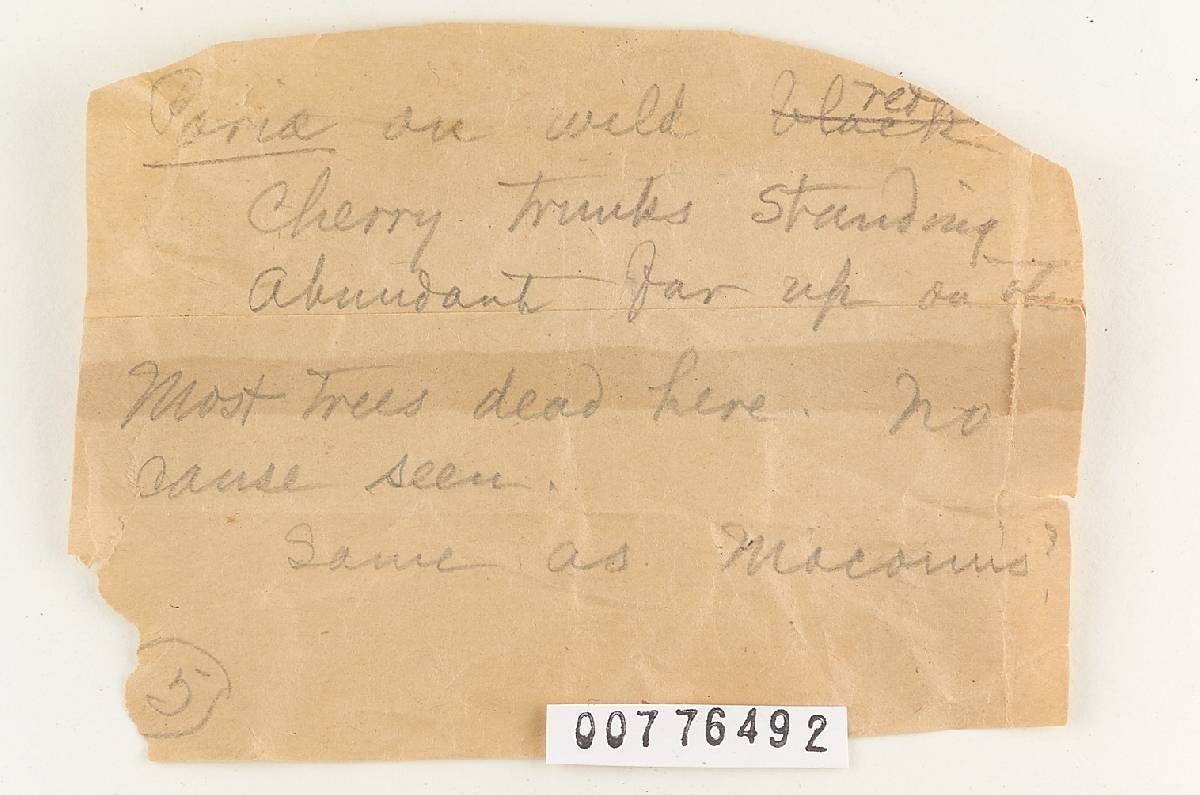 Poria on wild ~~black~~ red
Cherry Trunks standing
Abundant far up on the
Most Trees dead here. No
cause seen.
Same as Macouns?
5
00776492